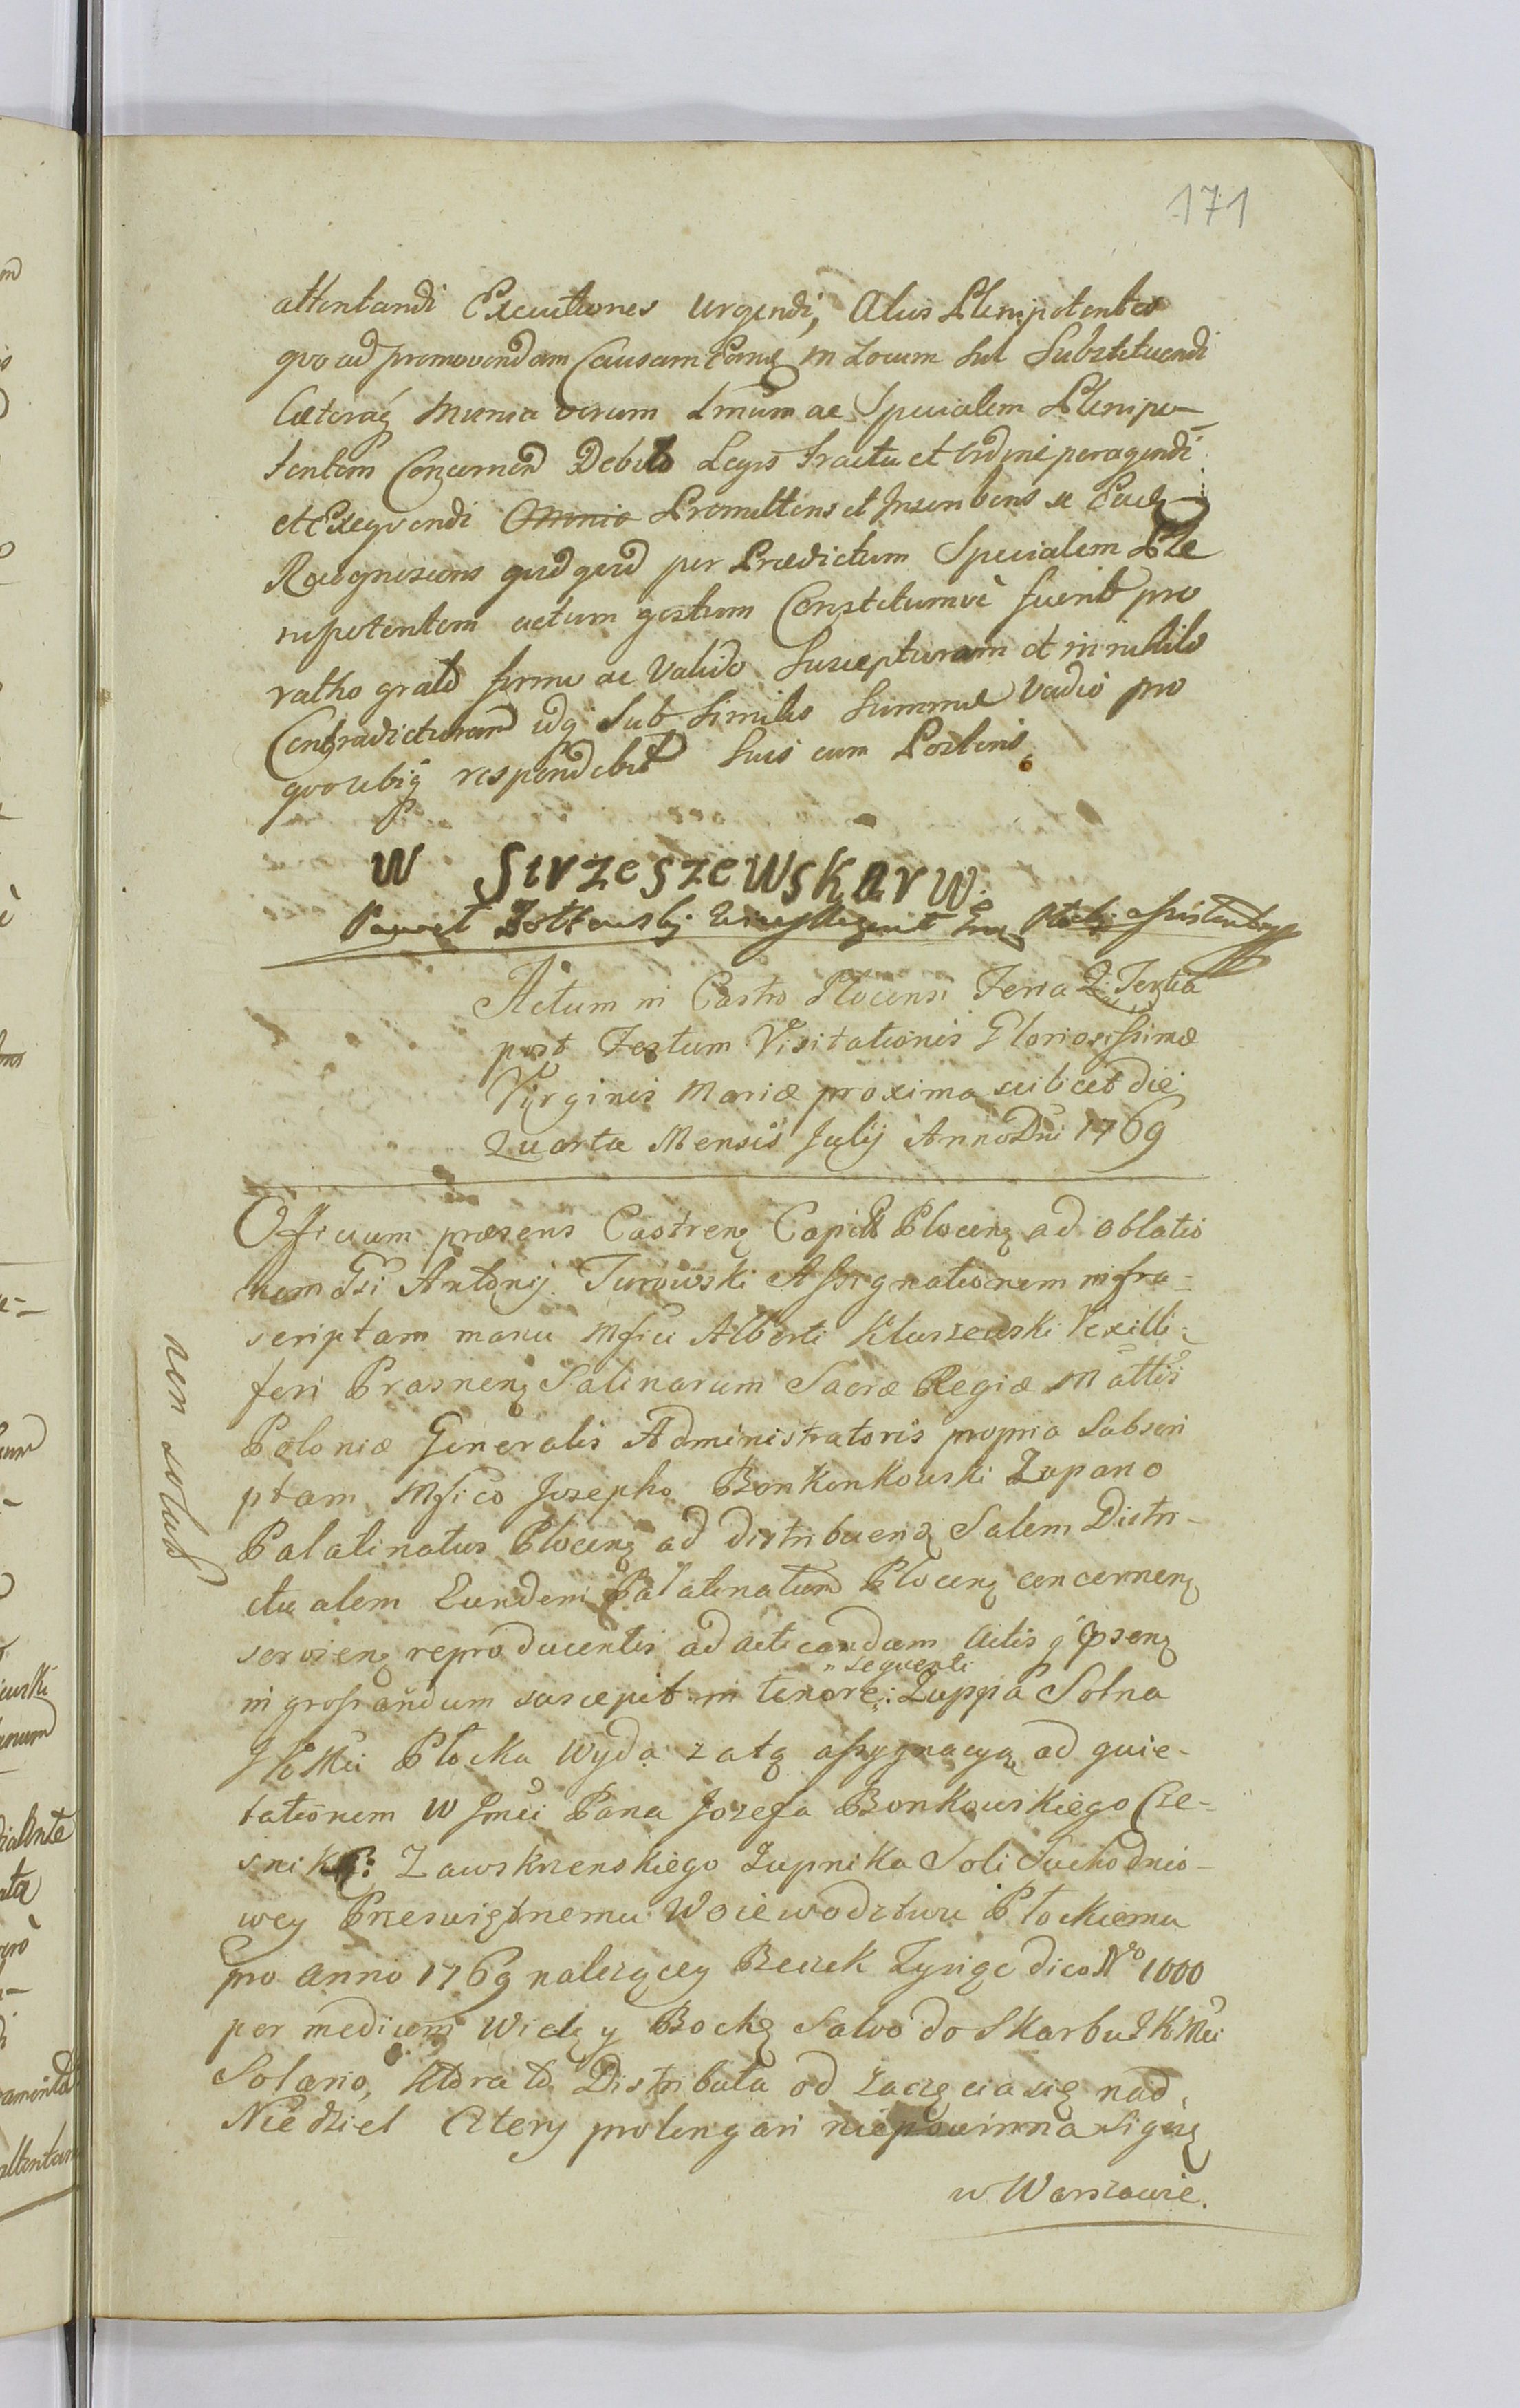 171
attentandi Executiones urgendi, Alios Plenipotentes
quo ad promovendam Causam Eamq in Locum sui Substituendi
Cæteraq munia verum Lmum ac Specialem Plenipo-
tentem Concernen Debito Legis tractu et ordine peragendi
et Exequendi Omnia Promittens et Inscribens se Eadq
Recognoscens quidquid per Prædictum Specialem Ple
nipotentem actum gestum Constitumve fuerit pro
ratho grato firmo ac Valido Suscepturam et in nihilo
Contradicturam idq Sub Similis Summæ Vadio pro
quo ubiq respondebit Suis cum Posteris
W Strzeszewska r w.
Paweł Zołtowski Assistentny
Actum in Castro Plocensi Feria Tertia
post Festum Visitationis Gloriosissimæ
Virginis Mariæ proxima scilicet die
Quarta Mensis Julij Anno Dni 1769
Officium præsens Castren Capit Plocen ad oblatio
nem Gsi Antonij Turowski Assignationem infra-
scriptam manu Mfici Alberti Kluszewski Vexilli-
feri Prasnen Salinarum Sacræ Regiæ Mattis
Poloniæ Generalis Administratoris propria Subscri
ptam Mfico Josepho Bonkonkowski Zupano
Palatinatus Plocen ad distribuend Salem Distri-
ctualem Eundem Palatinatum Plocen concernen
servien reproducentis ad acticandum Actis q Ipsenz
sequenti
ingrossandum suscepit in tenore: Zuppa Solna
JKMci Płocka Wyda za tą assygnacyą ad quie-
tationem W Jmci Pana Jozefa Bonkowskiego Cze-
snika Zawskrzenskiego Zupnika Soli Suchodnio-
wey Przeswiętnemu Woiewodztwu Płockiemu
pro Anno 1769 nalezącey Beczek Tysiąc dico No 1000
per medium Wielą y Bochę Salvo do Skarbu JKMci
Solario, Ktora to Distributa od zaczęcia się nad
Niedziel Cztery prolongari niepowinna Signą
w Warszawie.
non solus